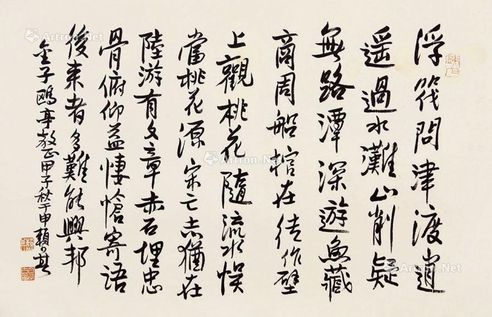 浮筏問津渡逍
遥過水灘山削疑
無路潭深遊魚藏
商周船棺在徒作壁
上觀桃花隨流水悮
當桃花源宋亡志猶在
陸游有文章赤石埋忠
骨俯仰益悽愴寄語
後來者多難能興邦
金子鷗亭教正甲子秋于申賴少其